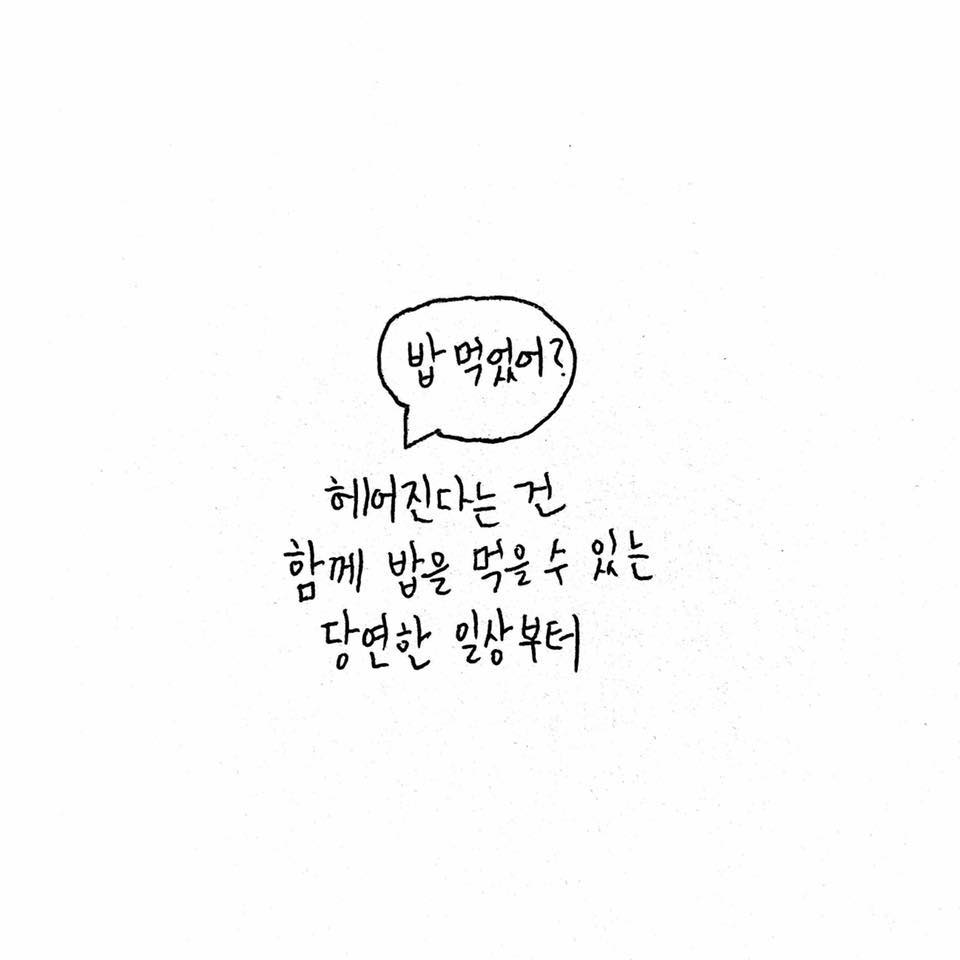 밥 먹었어?
헤어진다는 건
함께 밥을 먹을 수 있는
당연한 일상부터